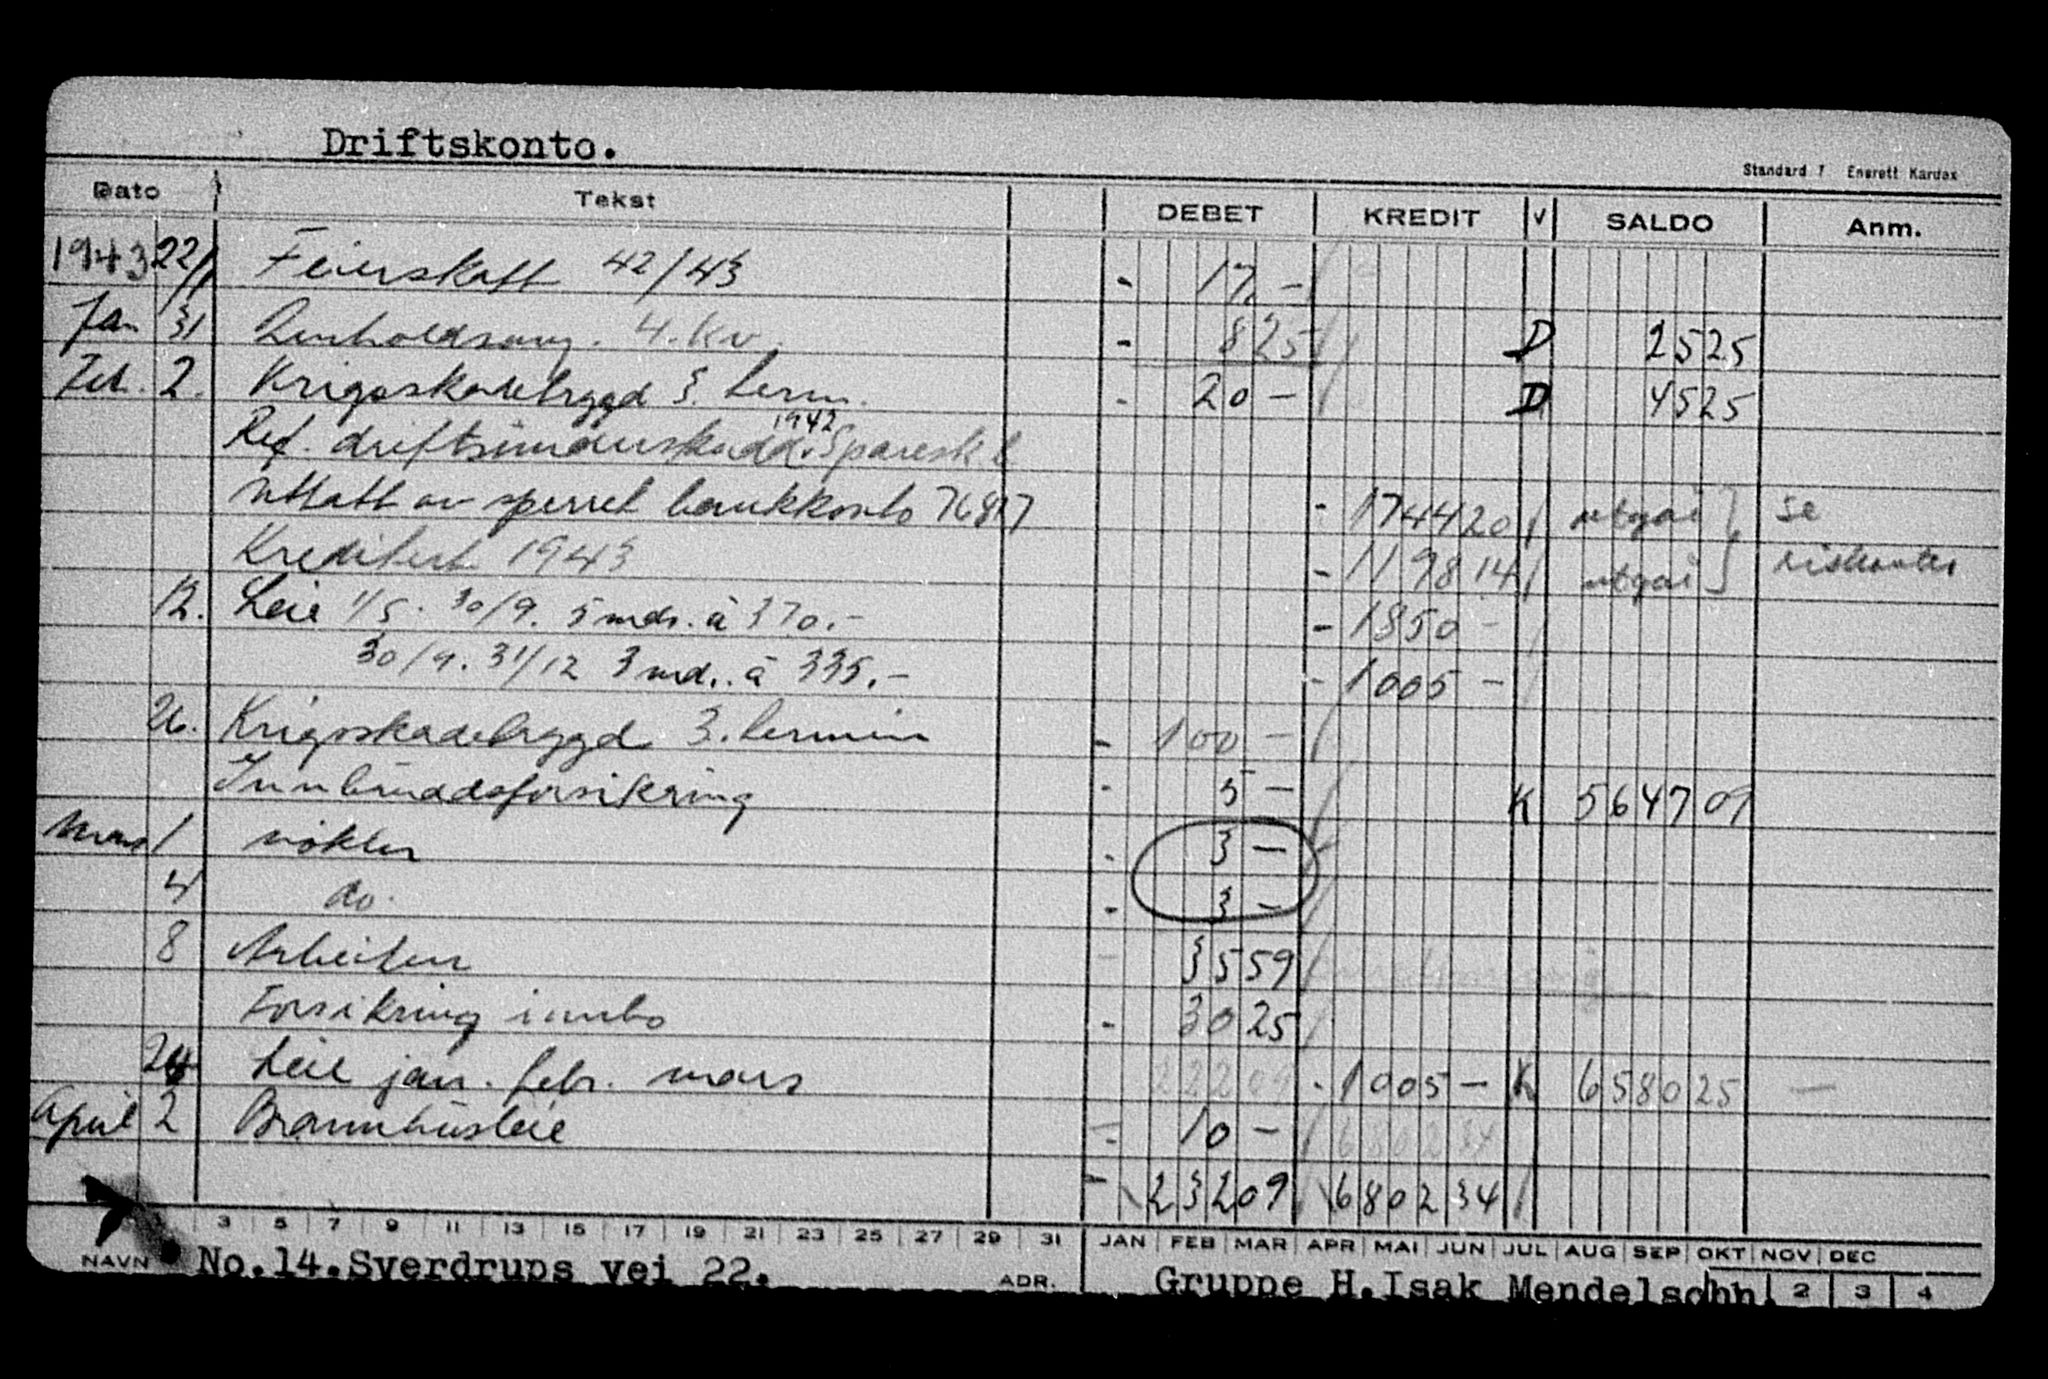 Driftskonto.
Standard 7 Enerett Kardex
Dato Tekst DEBET KREDIT V SALDO Anm.
1943 22/1 Feierskatt 42/43 - 17.-
Jan 31 Renholdsavg. 4. kv. - 825 D 2525
Feb. 2. Krigsskadetrygd 3. term. - 20 - D 4525
Ref. driftsunderskudd 1942 Sparesk.
uttatt av sperret bankkonto 76817 - 174420 utgår } se
Kreditert 1943 - 119814 utgår }
12. Leie 1/5 - 30/9. 5 mdr. à 370.- - 1850 -
30/9. 31/12 3 md. à 335.- - 1005 -
26. Krigsskadetrygd 3. termin - 100 -
Innbruddsforsikring - 5 - K 564709
Mars 1 nökler - 3 -
4 do. - 3 -
8 Arbeiten - 3559
Forsikring innbo - 3025
24 Leie jan. febr. mars 22209 - 1005 - K 658025 -
April 2 Brannhusleie - 10 - 680234
- 23209 680234
3 5 7 9 11 13 15 17 19 21 23 25 27 29 31 JAN FEB MAR APR MAI JUN JUL AUG SEP OKT NOV DEC
NAVN No.14.Sverdrups vei 22. ADR. Gruppe H.Isak Mendelsohn. 2 3 4